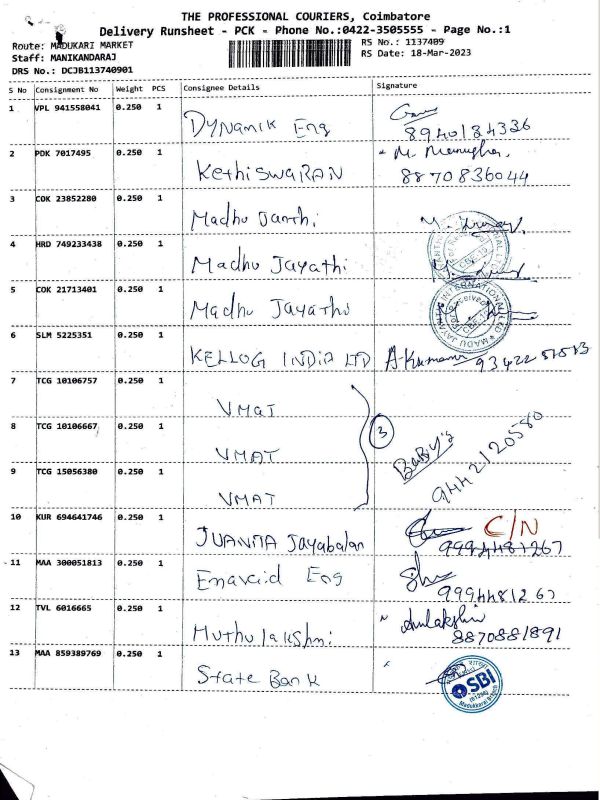 THE PROFESSIONAL COURIERS, Coimbatore
Delivery Runsheet - PCK - Phone No.:0422-3505555 - Page No.:1
Route: MADUKARI MARKET
RS No.: 1137409
Staff: MANIKANDARAJ
RS Date: 18-Mar-2023
DRS No.: DCJB113740901
S No Consignment No Weight PCS Consignee Details Signature
1 VPL 941558041 0.250 1 Dynamik Eng
8940184336
2 PDK 7017495 0.250 1 Kethiswaran
8870836044
3 COK 23852280 0.250 1 Madhu Janthi
4 HRD 749233438 0.250 1 Madhu Jayathi
5 COK 21713401 0.250 1 Madhu Jayathi
6 SLM 5225351 0.250 1 KELLOG INDIA LTD A-Kumar
7 TCG 10106757 0.250 1 VMAT
8 TCG 10106667 0.250 1 VMAT 3 BABY's 9442120580
9 TCG 15056380 0.250 1 VMAT
10 KUR 694641746 0.250 1 JUANTA Jayabalan C/N
9994481267
11 MAA 300051813 0.250 1 Eng
9994481267
12 TVL 6016665 0.250 1 Muthulakshmi
8870881891
13 MAA 859389769 0.250 1 State Bank
SBI
Madukkarai Branch